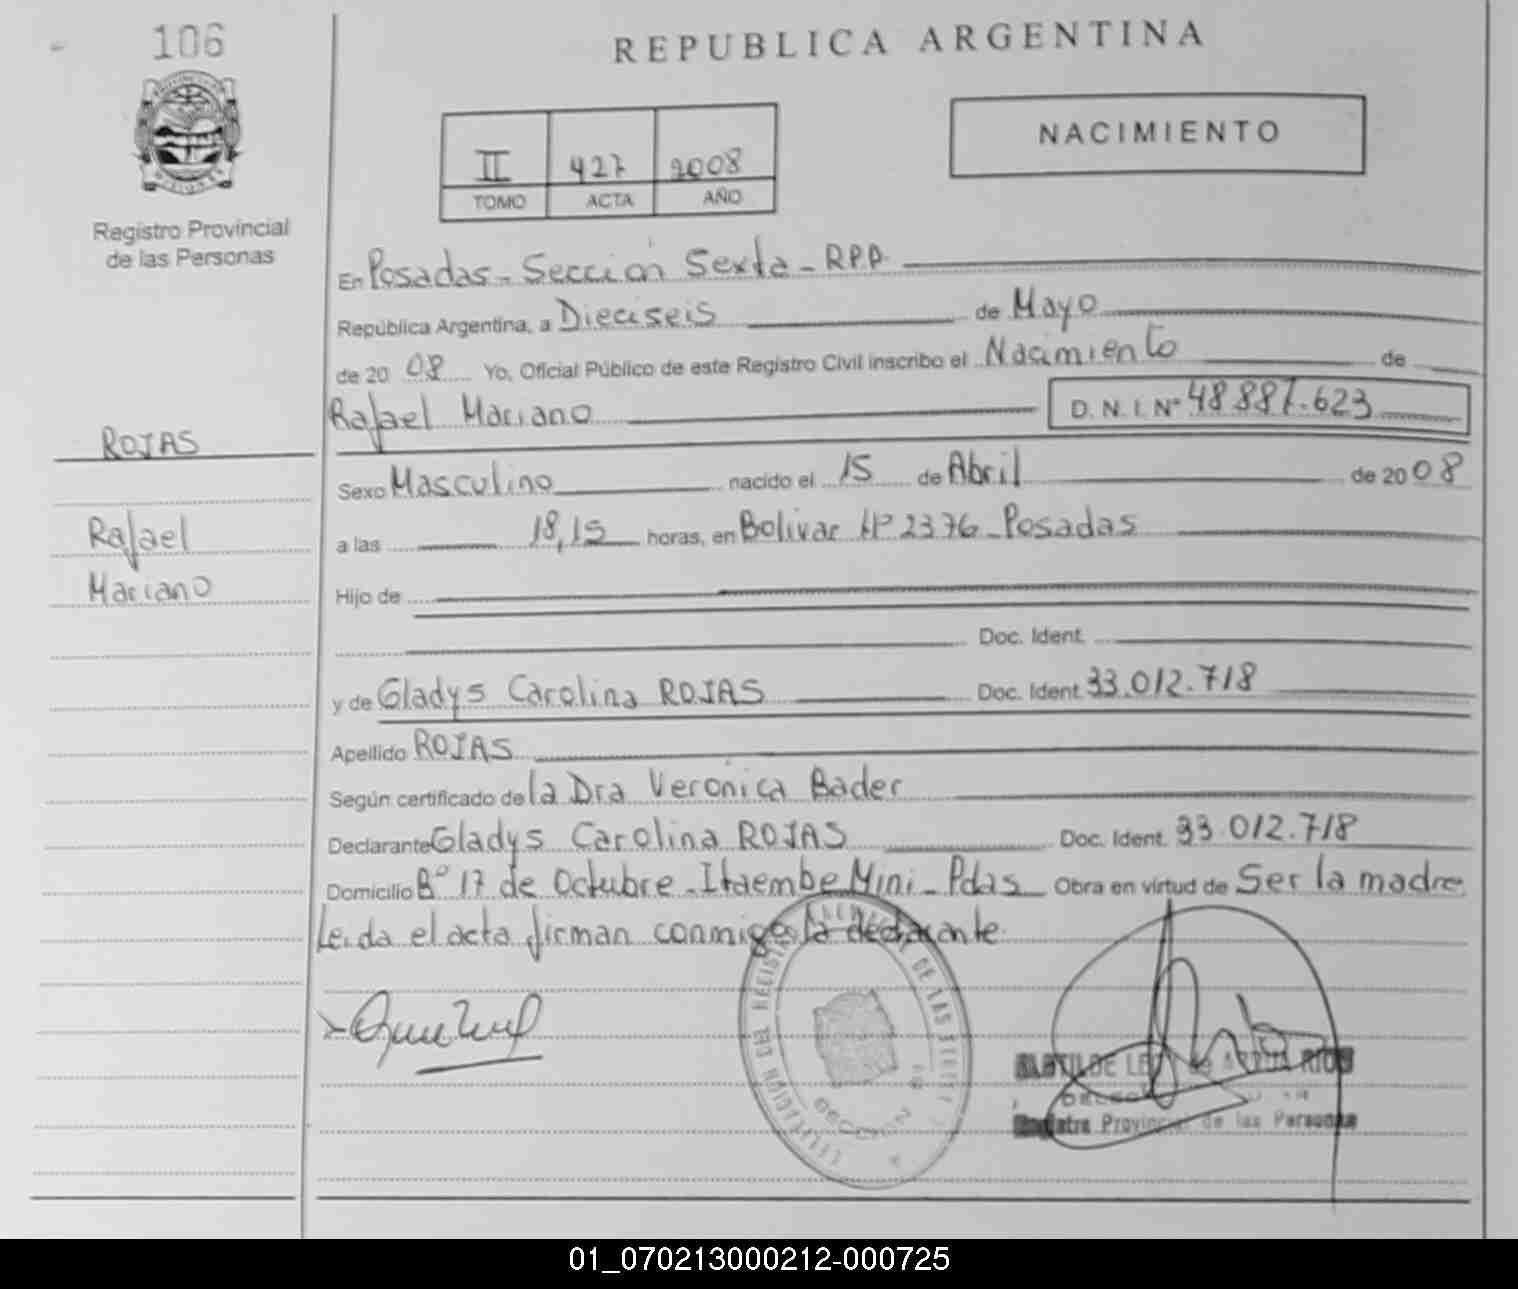 106
REPUBLICA ARGENTINA
II 427 2008
TOMO ACTA AÑO
NACIMIENTO
Registro Provincial
de las Personas
En Posadas - Sección Sexta - R.P.P.
República Argentina, a Dieciseis de Mayo
de 20 08 Yo, Oficial Público de este Registro Civil inscribo el Nacimiento de
Rafael Mariano D. N. I. Nº 48.887.623
ROJAS
Rafael
Mariano
Sexo Masculino nacido el 15 de Abril de 20 08
a las 18,15 horas, en Bolivar Nº 2376 - Posadas
Hijo de
Doc. Ident.
y de Gladys Carolina ROJAS Doc. Ident. 33.012.718
Apellido ROJAS
Según certificado de la Dra Veronica Bader
Declarante Gladys Carolina ROJAS Doc. Ident. 33.012.718
Domicilio Bº 17 de Octubre - Itaembe Mini - Pdas Obra en virtud de Ser la madre
Leida el acta firman conmigo la declarante
Registro Provincial de las Personas
01_070213000212-000725